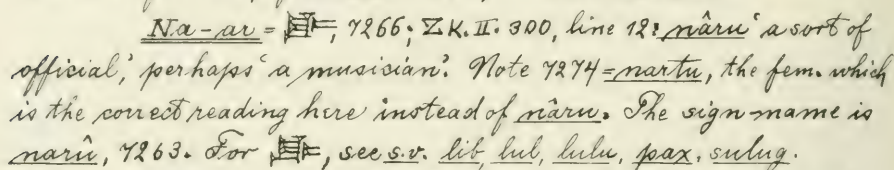 Na-ar = 𒈜, 7266; ZK. II. 300, line 12: nâru ‘a sort of
official’, perhaps ‘a musician’. Note 7274 = nartu, the fem. which
is the correct reading here instead of nâru. The sign-name is
narû, 7263. For 𒈜, see s.v. lib, lul, lulu, pax, sulug.